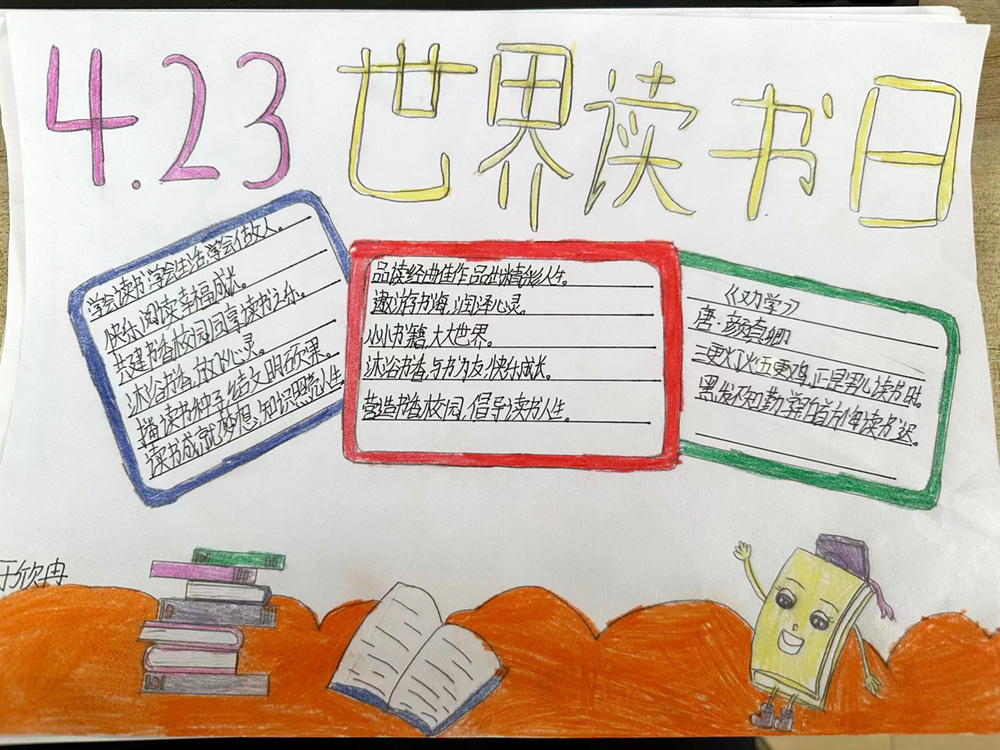 4.23 世界读书日
学会读书,学会生活,学会做人。
快乐阅读,幸福成长。
共建书香校园,同享读书之乐。
沐浴书香,放飞心灵。
播读书种子,结文明硕果。
读书成就梦想,知识照亮人生
品读经典佳作,品出精彩人生。
遨游书海,润泽心灵。
小小书籍,大大世界。
沐浴书香,与书为友,快乐成长。
营造书香校园,倡导读书人生。
《劝学》
唐·颜真卿
三更灯火五更鸡,正是男儿读书时。
黑发不知勤学早,白首方悔读书迟。
于欣冉